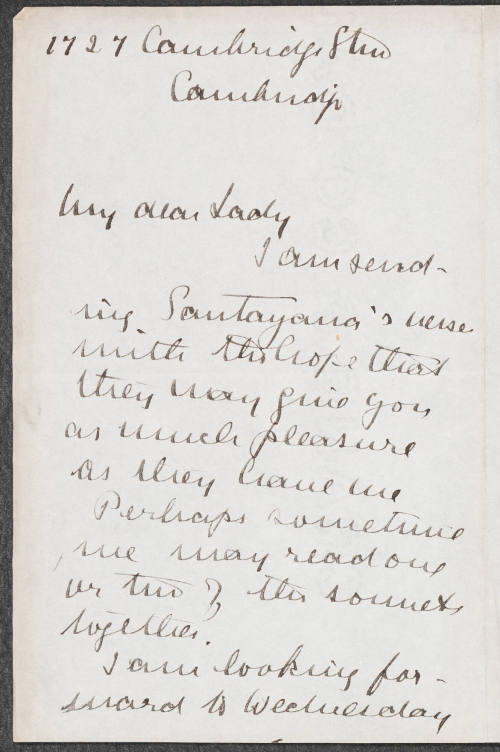 1727 Cambridge Stree
Cambridge
My dear Lady
I am send-
ing Santayana's verse
with the hope that
they may give you
as much pleasure
as they have me
Perhaps sometime
we may read one
or two of the sonnets
together.
I am looking for-
ward to Wednesday